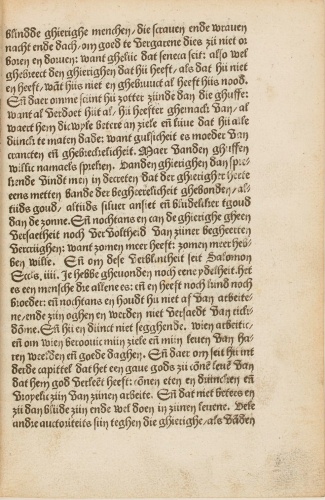 blindde ghierighe menchen, die scrauen ende wrauen
nacht ende dach, om goed te vergarene dies zii niet or
boren en doruen: want ghelijc dat seneca seit: also wel
ghebreect den ghierighen dat hii heeft, als dat hii niet
en heeft, wāt hiis niet en ghebruuct al heeft hiis nood.
Eñ daer omme scint hii zotter zijnde dan die ghuffe:
want al verdoet hiit al, hii heefter ghemack van, al
waert hem dicwyle betere an ziele eñ liiue dat hii alle
duinck te maten dade: want gulsicheit es moeder van
crancten eñ ghebreckelicheit. Maer vanden ghuffen
willic namaels spreken. Vanden ghierighen dan spre-
kende vindt men in decreten dat der ghierigher herte
eens metten bande der begheerlicheit ghebonden, al-
tiids goud, altiids siluer ansiet eñ bliidelicker tgoud
dan de zonne. Eñ nochtans en can de ghierighe gheen
versaetheit noch vervoltheid van ziiner begheerten
vercriighen: want zomen meer heeft: zomen meer heb-
ben wille. Eñ om dese verblintheit seit Salomon
Eccs. iiii. Je hebbe gheuonden noch eene ydelheit. het
es een mensche die allene es: eñ en heeft noch kind noch
broeder: eñ nochtans en houdt hii niet af van arbeite-
ne, ende ziin oghen en werden niet versaedt van riick-
dōme. Eñ hii en diinct niet segghende. wien arbeitic,
eñ om wien beroouic miin ziele eñ miin leuen van ha-
ren weelden eñ goede daghen. Eñ daer om seit hii int
derde capittel dat het een gaue gods zii cōnē leuē van
dat hem god verleēt heeft: cōnen eten en driincken eñ
vropelic ziin van ziinen arbeite. Eñ dat niet beters en
zii dan bliide ziin ende wel doen in ziinen leuene. Vele
andre auctoriteits siin teghen die ghierighe, als vādēn